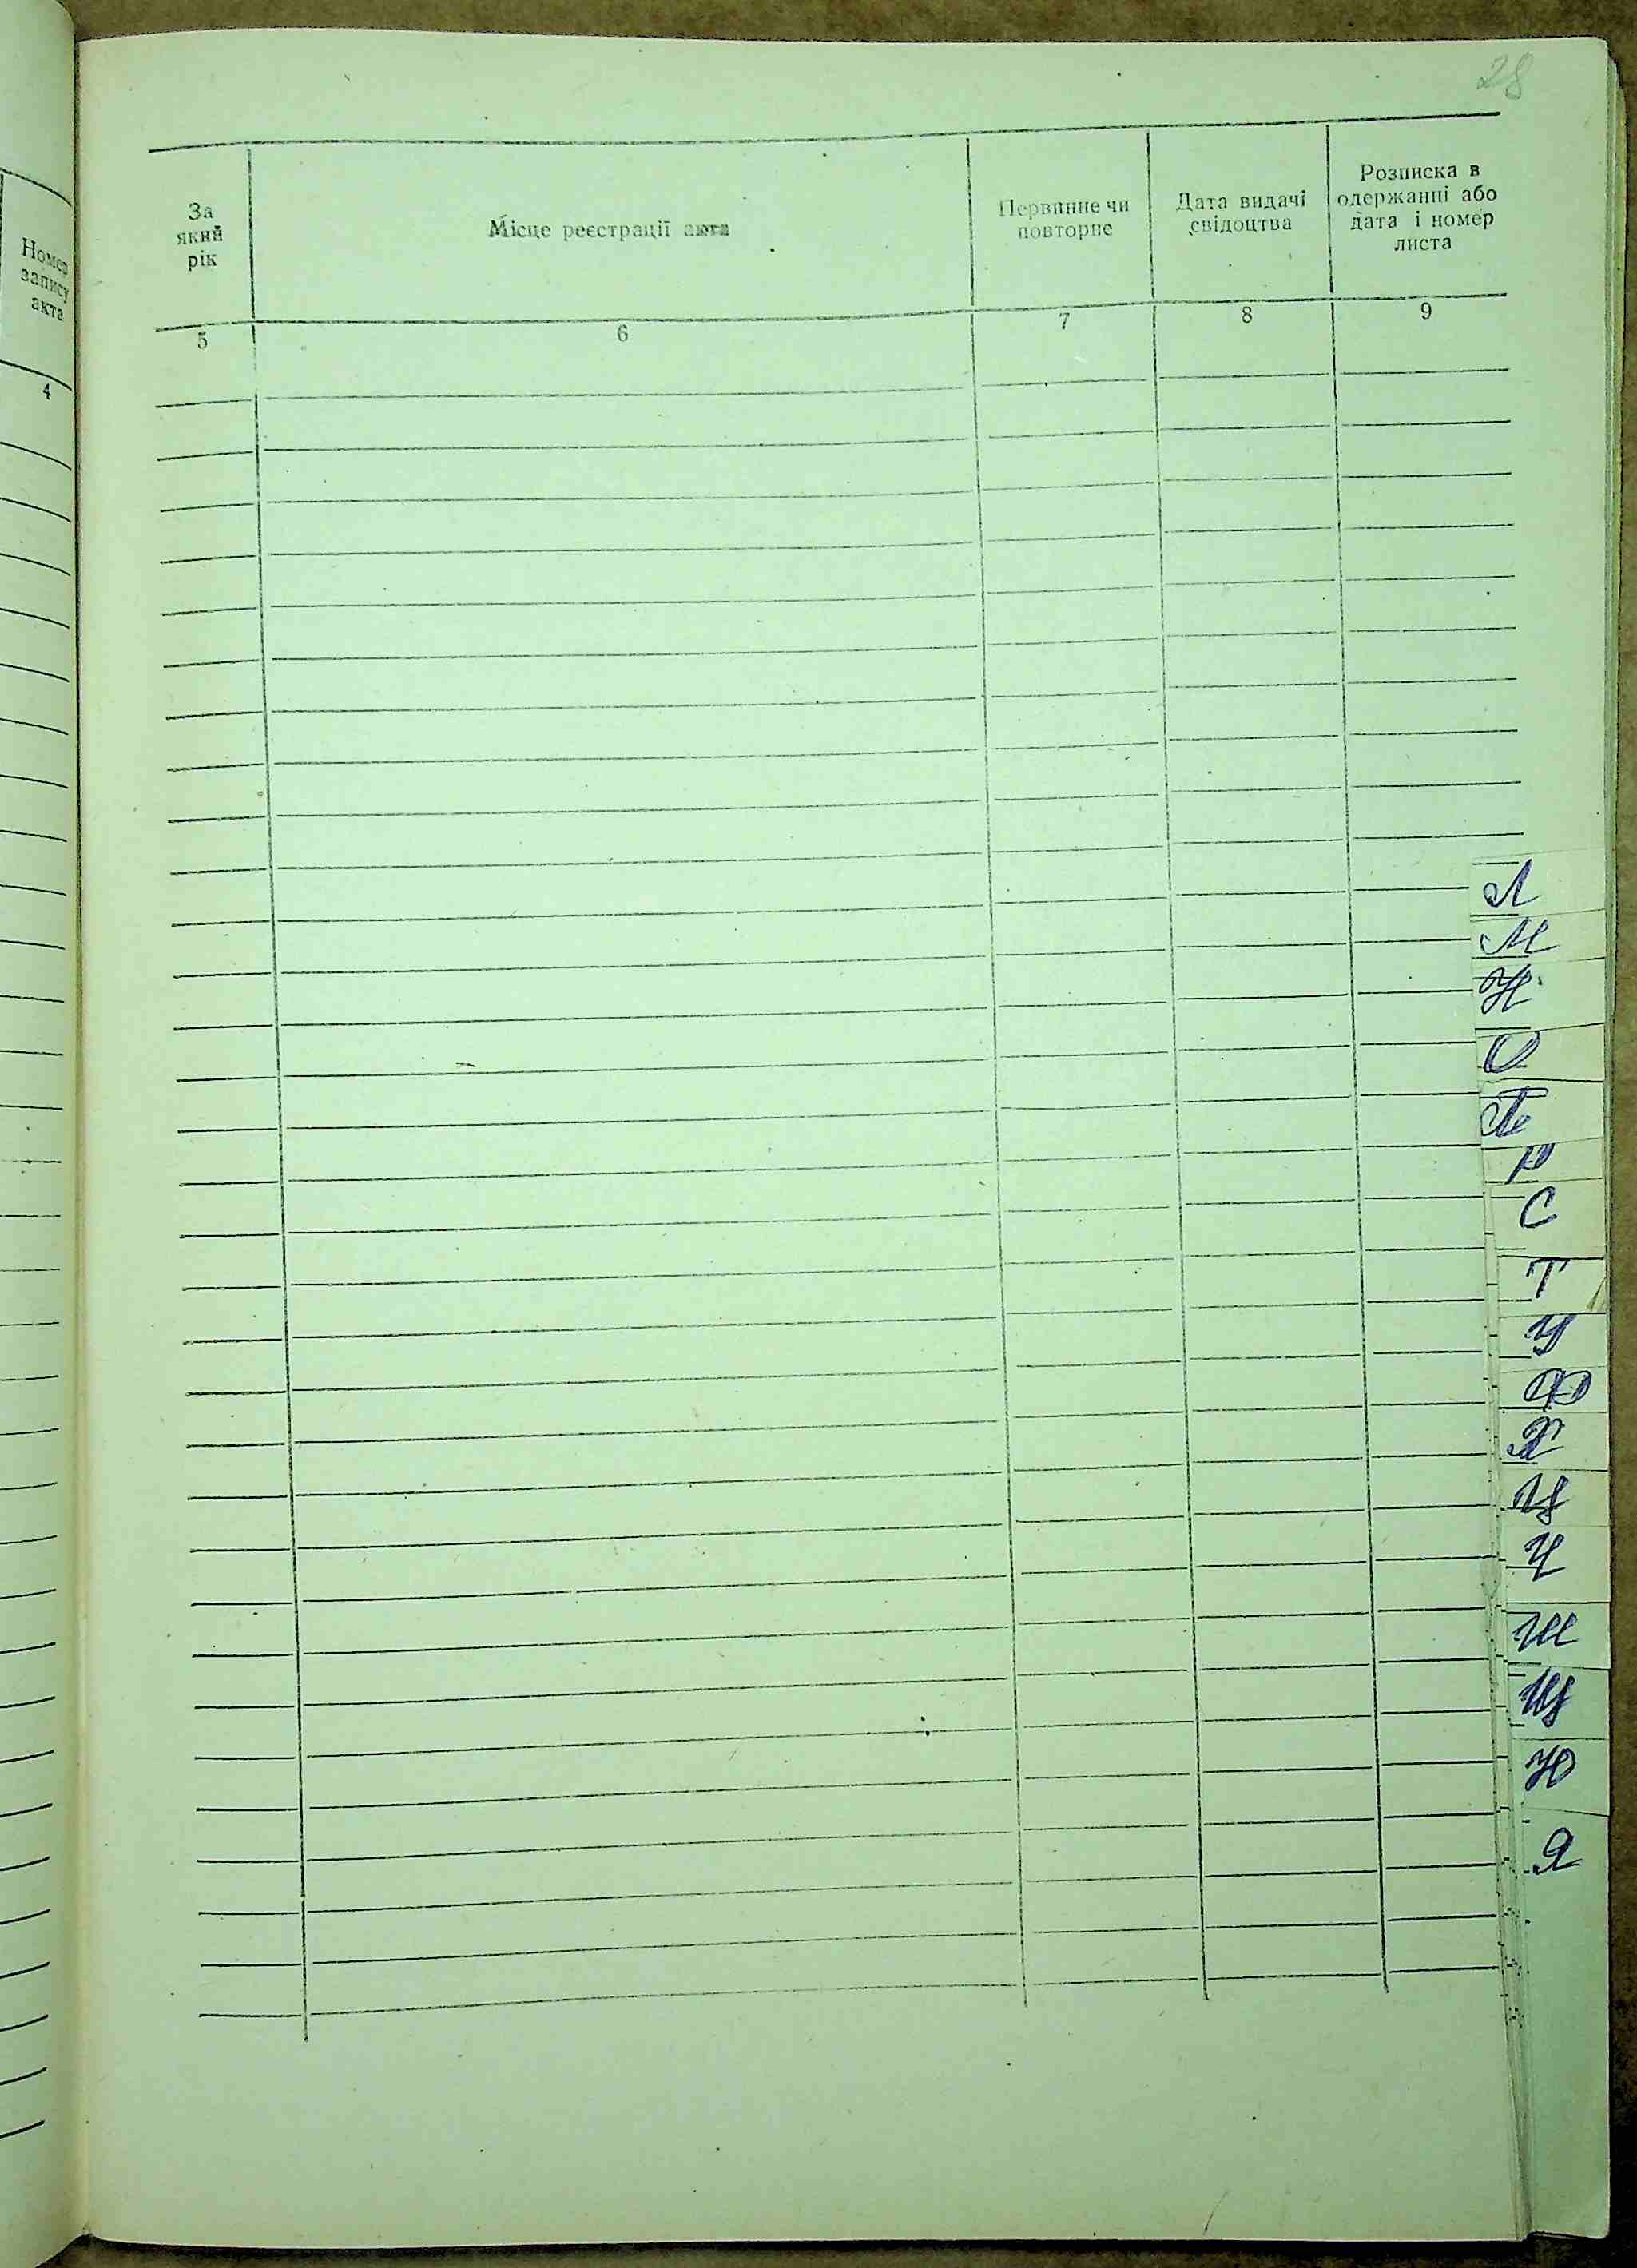 28
Номер
запису
акта
4
За
який
рік
Місце реєстрації акта
Первинне чи
повторне
Дата видачі
свідоцтва
Розписка в
одержанні або
дата і номер
листа
5
6
7
8
9
Л
М
Н
О
П
Р
С
Т
У
Ф
Х
Ц
Ч
Ш
Щ
Ю
Я